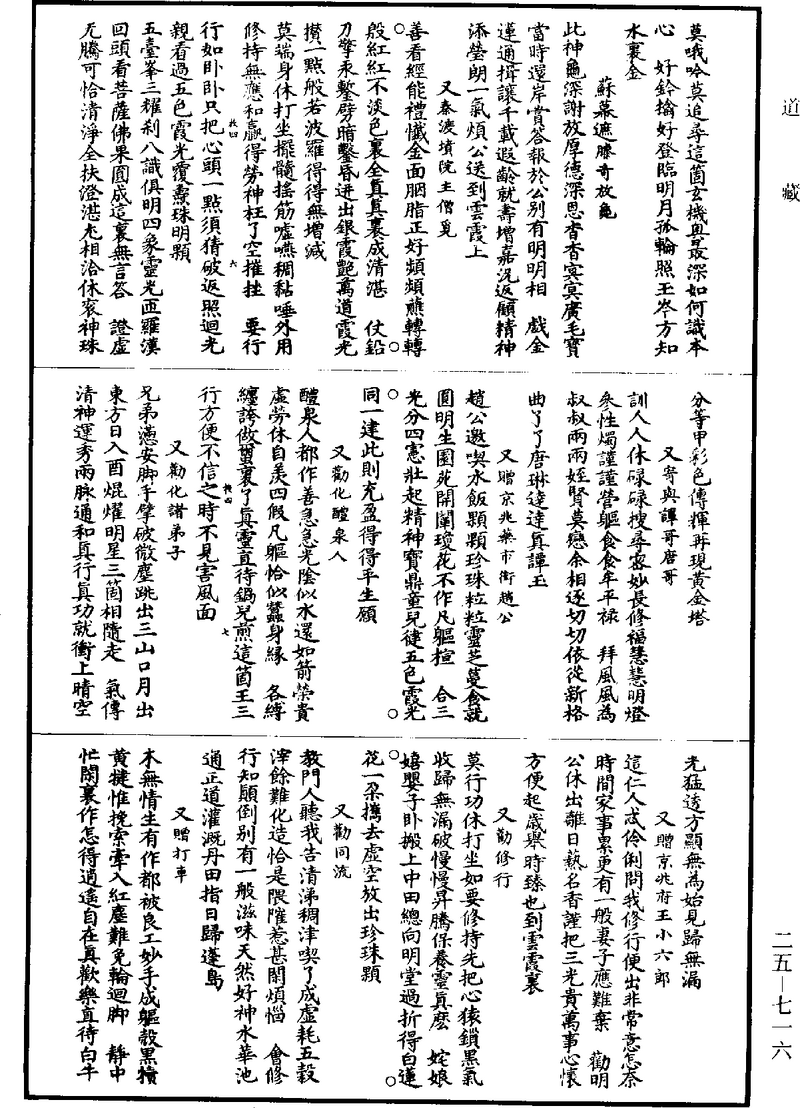 道藏
莫哦吟莫追尋這箇玄機奧最深如何識本
心　好鈴擒好登臨明月孤輪照玉岑方知
水裏金
蘇幕遮勝奇放龜
此神龜深謝放厚德深思杳杳冥冥廣毛寶
當時還岸賞答報於公別有明明相　戲金
蓮通揖讓千載遐齡就壽增嘉況返顧精神
添瑩朗一氣煩公送到雲霞上
又秦渡墳院主僧覓
善看經能禮懺金面胭脂正好頻頻蘸轉轉
殷紅紅不淡色裏全真真裏成清湛　仗鉛
刀擎汞鏨劈暗鑿昏迸出銀霞艷萬道霞光
攢一點般若波羅得得無增減
莫端身休打坐擺髓搖筋噓嚥稠黏唾外用
修持無應和贏得勞神枉了空摧挫　要行
行如卧卧只把心頭一點須猜破返照迴光
親看過五色霞光覆燾珠明顆
五臺峯三耀剎八識俱明四象靈光匝羅漢
回頭看菩薩佛果圓成這裏無言答　證虛
无騰可恰清淨全扶澄湛尤相洽休衮神珠
分等甲彩色傳輝再現黃金塔
又寄與譚哥唐哥
訓人人休碌碌搜尋密妙長修福慧慧明燈
參性燭謹謹營軀食食牟平祿　拜風風為
叔叔兩兩姪賢莫戀余相逐切切依從新格
曲了了唐琳逹逹真譚玉
又贈京兆藥市街趙公
趙公邀喫水飯顆顆珍珠粒粒靈芝蔓食就
圓明生園苑開闡瓊花不作凡軀楦　合三
光分四憲壯起精神寶鼎童兒健五色霞光
同一建此則充盈得得平生願
又勸化醴泉人
醴泉人都作善急急光陰似水還如箭榮貴
虛勞休自羡四假凡軀恰似蠶身緣　各縛
纏誇做繭裏了真靈直待鍋兒煎這箇王三
行方便不信之時不見害風面
又勸化諸弟子
兄弟懣安脚手擘破微塵跳出三山口月出
東方日入酉焜燿明星三箇相隨走　氣傳
清神運秀兩脉通和真行真功就衝上晴空
光猛透方顯無為始見歸無漏
又贈京兆府王小六郎
這仁人忒伶俐問我修行便出非常意怎奈
時間家事累更有一般妻子應難棄　勸明
公休出離日爇名香謹把三光貴萬事心懷
方便起歲舉時臻也到雲霞裏
又勸修行
莫行功休打坐如要修持先把心猿鎖黑氣
收歸無漏破慢慢昇騰保養靈真麽　姹娘
嬉嬰子卧搬上中田總向明堂過折得白蓮
花一朵攜去虛空放出珍珠顆
又勸同流
教門人聽我告清涕稠津喫了成虛耗五穀
滓餘難化造恰是隈隑惹甚閑煩惱　會修
行知顛倒別有一般滋味天然好神水華池
通正道灌溉丹田指日歸蓬島
又贈打車
木無情生有作都被良工妙手成軀殼黑犢
黃犍惟挽索牽入紅塵難免輪迴脚　靜中
忙閑裏作怎得逍遙自在真歡樂直待白牛
二五—七一六